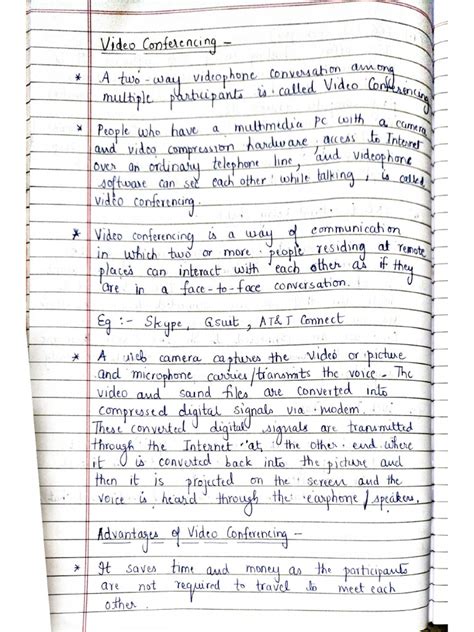 Video Conferencing -
* A two-way videophone conversation among
multiple participants is called Video Conferencing
* People who have a multimedia PC with a camera
and video compression hardware, access to Internet
over an ordinary telephone line, and videophone
software can see each other while talking, is called
video conferencing.
* Video conferencing is a way of communication
in which two or more people residing at remote
places can interact with each other as if they
are in a face-to-face conversation.
Eg :- Skype, Gsuit, AT&T Connect
* A web camera captures the video or picture
and microphone carries/transmits the voice. The
video and sound files are converted into
compressed digital signals via modem.
These converted digital signals are transmitted
through the Internet at the other end where
it is converted back into the picture and
then it is projected on the screen and the
voice is heard through the earphone/speakers.
Advantages of Video Conferencing -
* It saves time and money as the participants
are not required to travel to meet each
other.